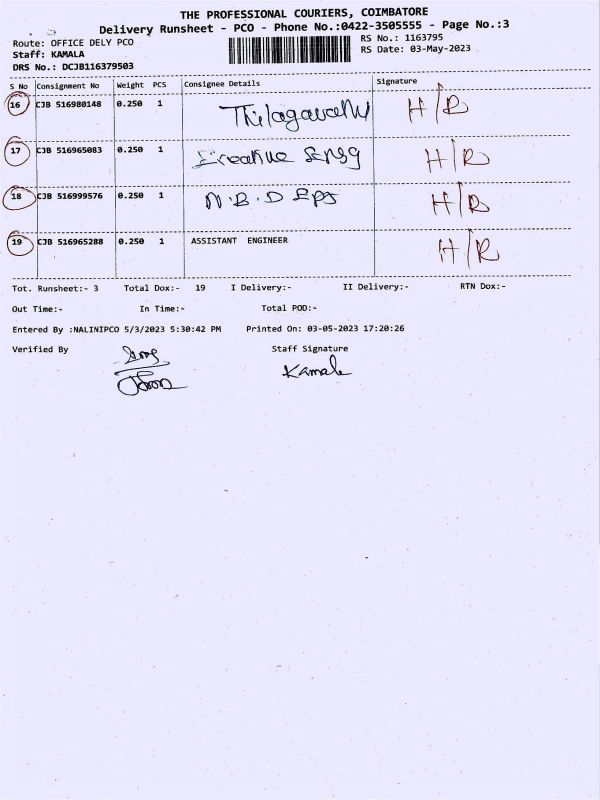 THE PROFESSIONAL COURIERS, COIMBATORE
Delivery Runsheet - PCO - Phone No.:0422-3505555 - Page No.:3
Route: OFFICE DELY PCO RS No.: 1163795
Staff: KAMALA RS Date: 03-May-2023
DRS No.: DCJB116379503
S No Consignment No Weight PCS Consignee Details Signature
16 CJB 516980148 0.250 1 H/R
17 CJB 516965083 0.250 1 Creative H/R
18 CJB 516999576 0.250 1 N.B.D H/R
19 CJB 516965288 0.250 1 ASSISTANT ENGINEER H/R
Tot. Runsheet:- 3 Total Dox:- 19 I Delivery:- II Delivery:- RTN Dox:-
Out Time:- In Time:- Total POD:-
Entered By :NALINIPCO 5/3/2023 5:30:42 PM Printed On: 03-05-2023 17:20:26
Verified By Staff Signature
Kamala